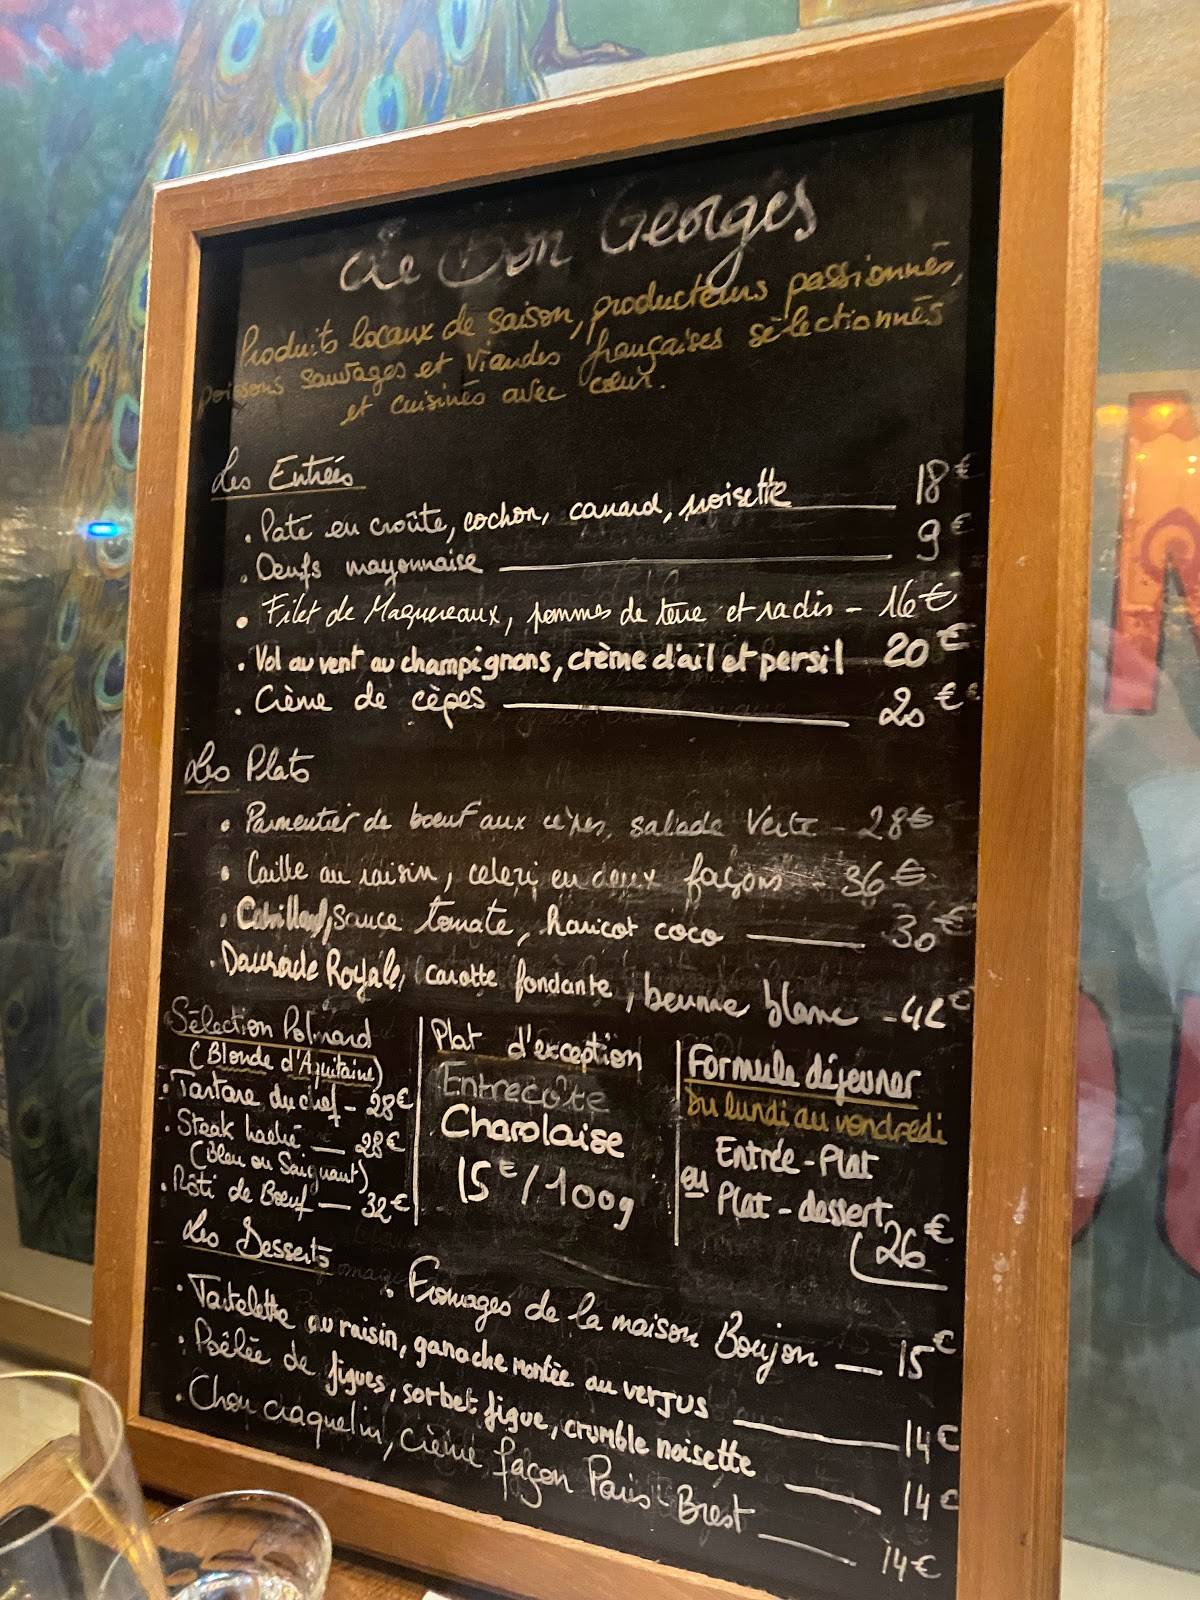 Le Bon Georges
Produits locaux de saison, producteurs passionnés,
poissons sauvages et viandes françaises sélectionnés
et cuisinés avec cœur.
Les Entrées
. Paté en croûte, cochon, canard, noisette 18€
. Oeufs mayonnaise 9€
• Filet de Maquereaux, pommes de terre et radis - 16€
. Vol au vent au champignons, crème d'ail et persil 20€
. Crème de cèpes 20€
Les Plats
• Parmentier de boeuf aux cèpes, salade verte - 28€
• Caille au raisin, celeri en deux façons - 36€
. Cabillaud, sauce tomate, haricot coco 30€
. Daurade Royale, carotte fondante, beurre blanc - 42€
Sélection Polmard
(Blonde d'Aquitaine)
. Tartare du chef - 28€
. Steak haché — 28€
(Bleu ou Saignant)
. Rôti de Bœuf — 32€
Plat d'exception
Entrecôte
Charolaise
15€/100g
Formule déjeuner
Du lundi au vendredi
Entrée - Plat
ou Plat - dessert
26€
Les Desserts
. Fromages de la maison Boujon — 15€
. Tartelette au raisin, ganache montée au verjus 14€
. Poêlée de figues, sorbet figue, crumble noisette 14€
. Chou craquelin, crème façon Paris-Brest 14€